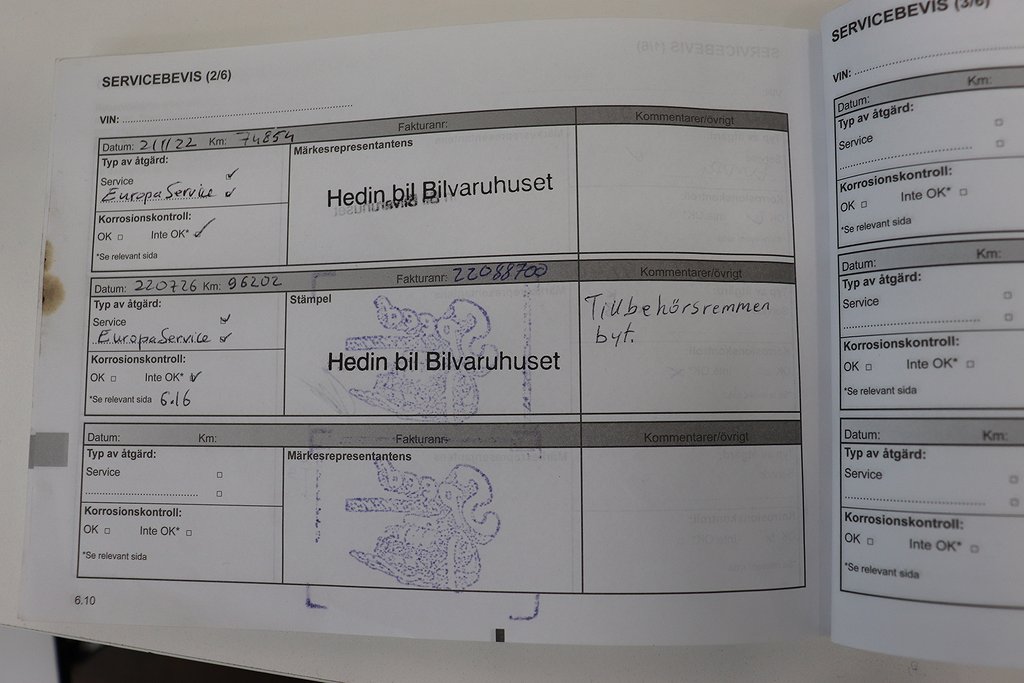 SERVICEBEVIS (2/6)
VIN:
Datum: 211122 Km: 74854 Fakturanr: Kommentarer/övrigt
Typ av åtgärd: Märkesrepresentantens
Service ✓
EuropaService ✓
Hedin bil Bilvaruhuset
Korrosionskontroll:
OK □ Inte OK* ✓
*Se relevant sida
Datum: 220726 Km: 96202 Fakturanr: 22088700 Kommentarer/övrigt
Typ av åtgärd: Stämpel
Service ✓
EuropaService ✓
Hedin bil Bilvaruhuset
Tillbehörsremmen
byt.
Korrosionskontroll:
OK □ Inte OK* ✓
*Se relevant sida 6.16
Datum: Km: Fakturanr: Kommentarer/övrigt
Typ av åtgärd: Märkesrepresentantens
Service □
□
Korrosionskontroll:
OK □ Inte OK* □
*Se relevant sida
6.10
SERVICEBEVIS (3/6)
VIN:
Datum: Km:
Typ av åtgärd:
Service □
□
Korrosionskontroll:
OK □ Inte OK* □
*Se relevant sida
Datum:
Typ av åtgärd:
Service □
□
Korrosionskontroll:
OK □ Inte OK* □
*Se relevant sida
Datum: Km:
Typ av åtgärd:
Service □
□
Korrosionskontroll:
OK □ Inte OK* □
*Se relevant sida